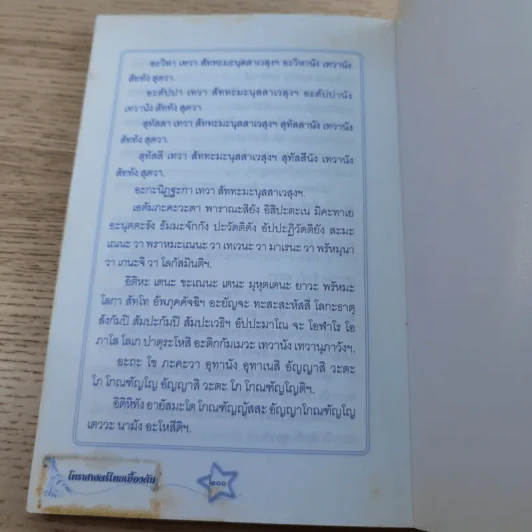 อะวิหา เทวา สัททะมะนุสสาเวสุงฯ อะวิหานัง เทวานัง
สัททัง สุตวา.
อะตัปปา เทวา สัททะมะนุสสาเวสุงฯ อะตัปปานัง
เทวานัง สัททัง สุตวา.
สุทัสสา เทวา สัททะมะนุสสาเวสุงฯ สุทัสสานัง เทวานัง
สัททัง สุตวา.
สุทัสสี เทวา สัททะมะนุสสาเวสุงฯ สุทัสสีนัง เทวานัง
สัททัง สุตวา.
อะกะนิฏฐะกา เทวา สัททะมะนุสสาเวสุงฯ.
เอตัมภะคะวะตา พาราณะสิยัง อิสิปะตะเน มิคะทาเย
อะนุตตะรัง ธัมมะจักกัง ปะวัตติตัง อัปปะฏิวัตติยัง สะมะ
เณนะ วา พราหมะเณนะ วา เทเวนะ วา มาเรนะ วา พรัหมุนา
วา เกนะจิ วา โลกัสมินติฯ.
อิติหะ เตนะ ขะเณนะ เตนะ มุหุตเตนะ ยาวะ พรัหมะ
โลกา สัทโท อัพภุคคัจฉิฯ อะยัญจะ ทะสะสะหัสสี โลกะธาตุ
สังกัมปิ สัมปะกัมปิ สัมปะเวธิฯ อัปปะมาโณ จะ โอฬาโร โอ
ภาโส โลเก ปาตุระโหสิ อะติกกัมเมวะ เทวานัง เทวานุภาวังฯ.
อะถะ โข ภะคะวา อุทานัง อุทาเนสิ อัญญาสิ วะตะ
โภ โกณฑัญโญ อัญญาสิ วะตะ โภ โกณฑัญโญติฯ.
อิติหิทัง อายัสมะโต โกณฑัญญัสสะ อัญญาโกณฑัญโญ
เตววะ นามัง อะโหสีติฯ.
โหราศาสตร์ไทยเบื้องต้น
๔๐๐